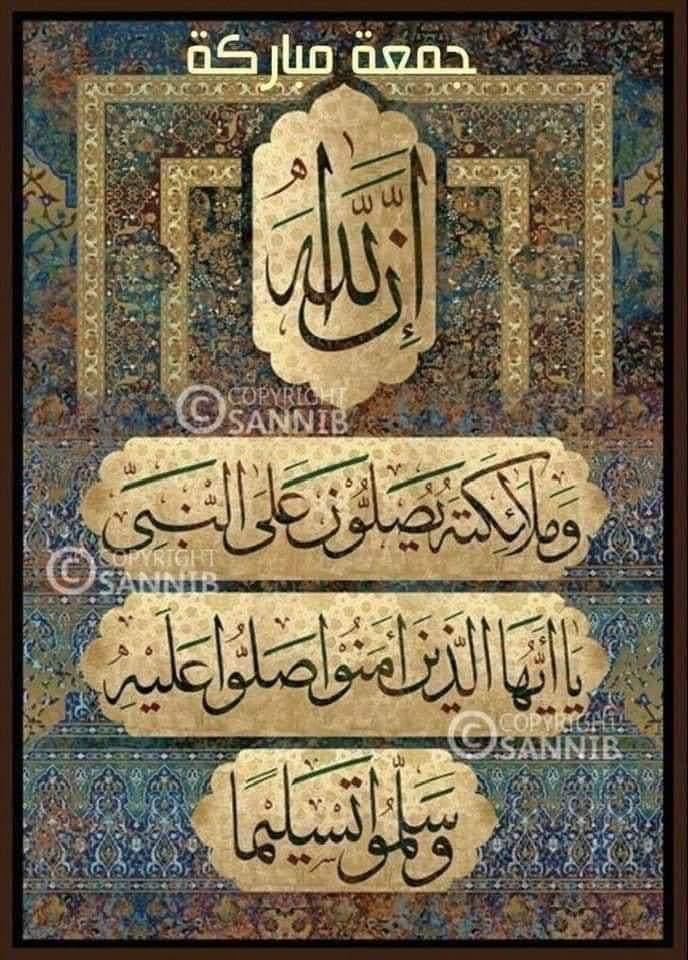 جمعة مباركة
إِنَّ اللَّهَ
COPYRIGHT
© SANNIB
وَمَلَائِكَتَهُ يُصَلُّونَ عَلَى النَّبِيِّ
COPYRIGHT
© SANNIB
يَا أَيُّهَا الَّذِينَ آمَنُوا صَلُّوا عَلَيْهِ
COPYRIGHT
© SANNIB
وَسَلِّمُوا تَسْلِيمًا